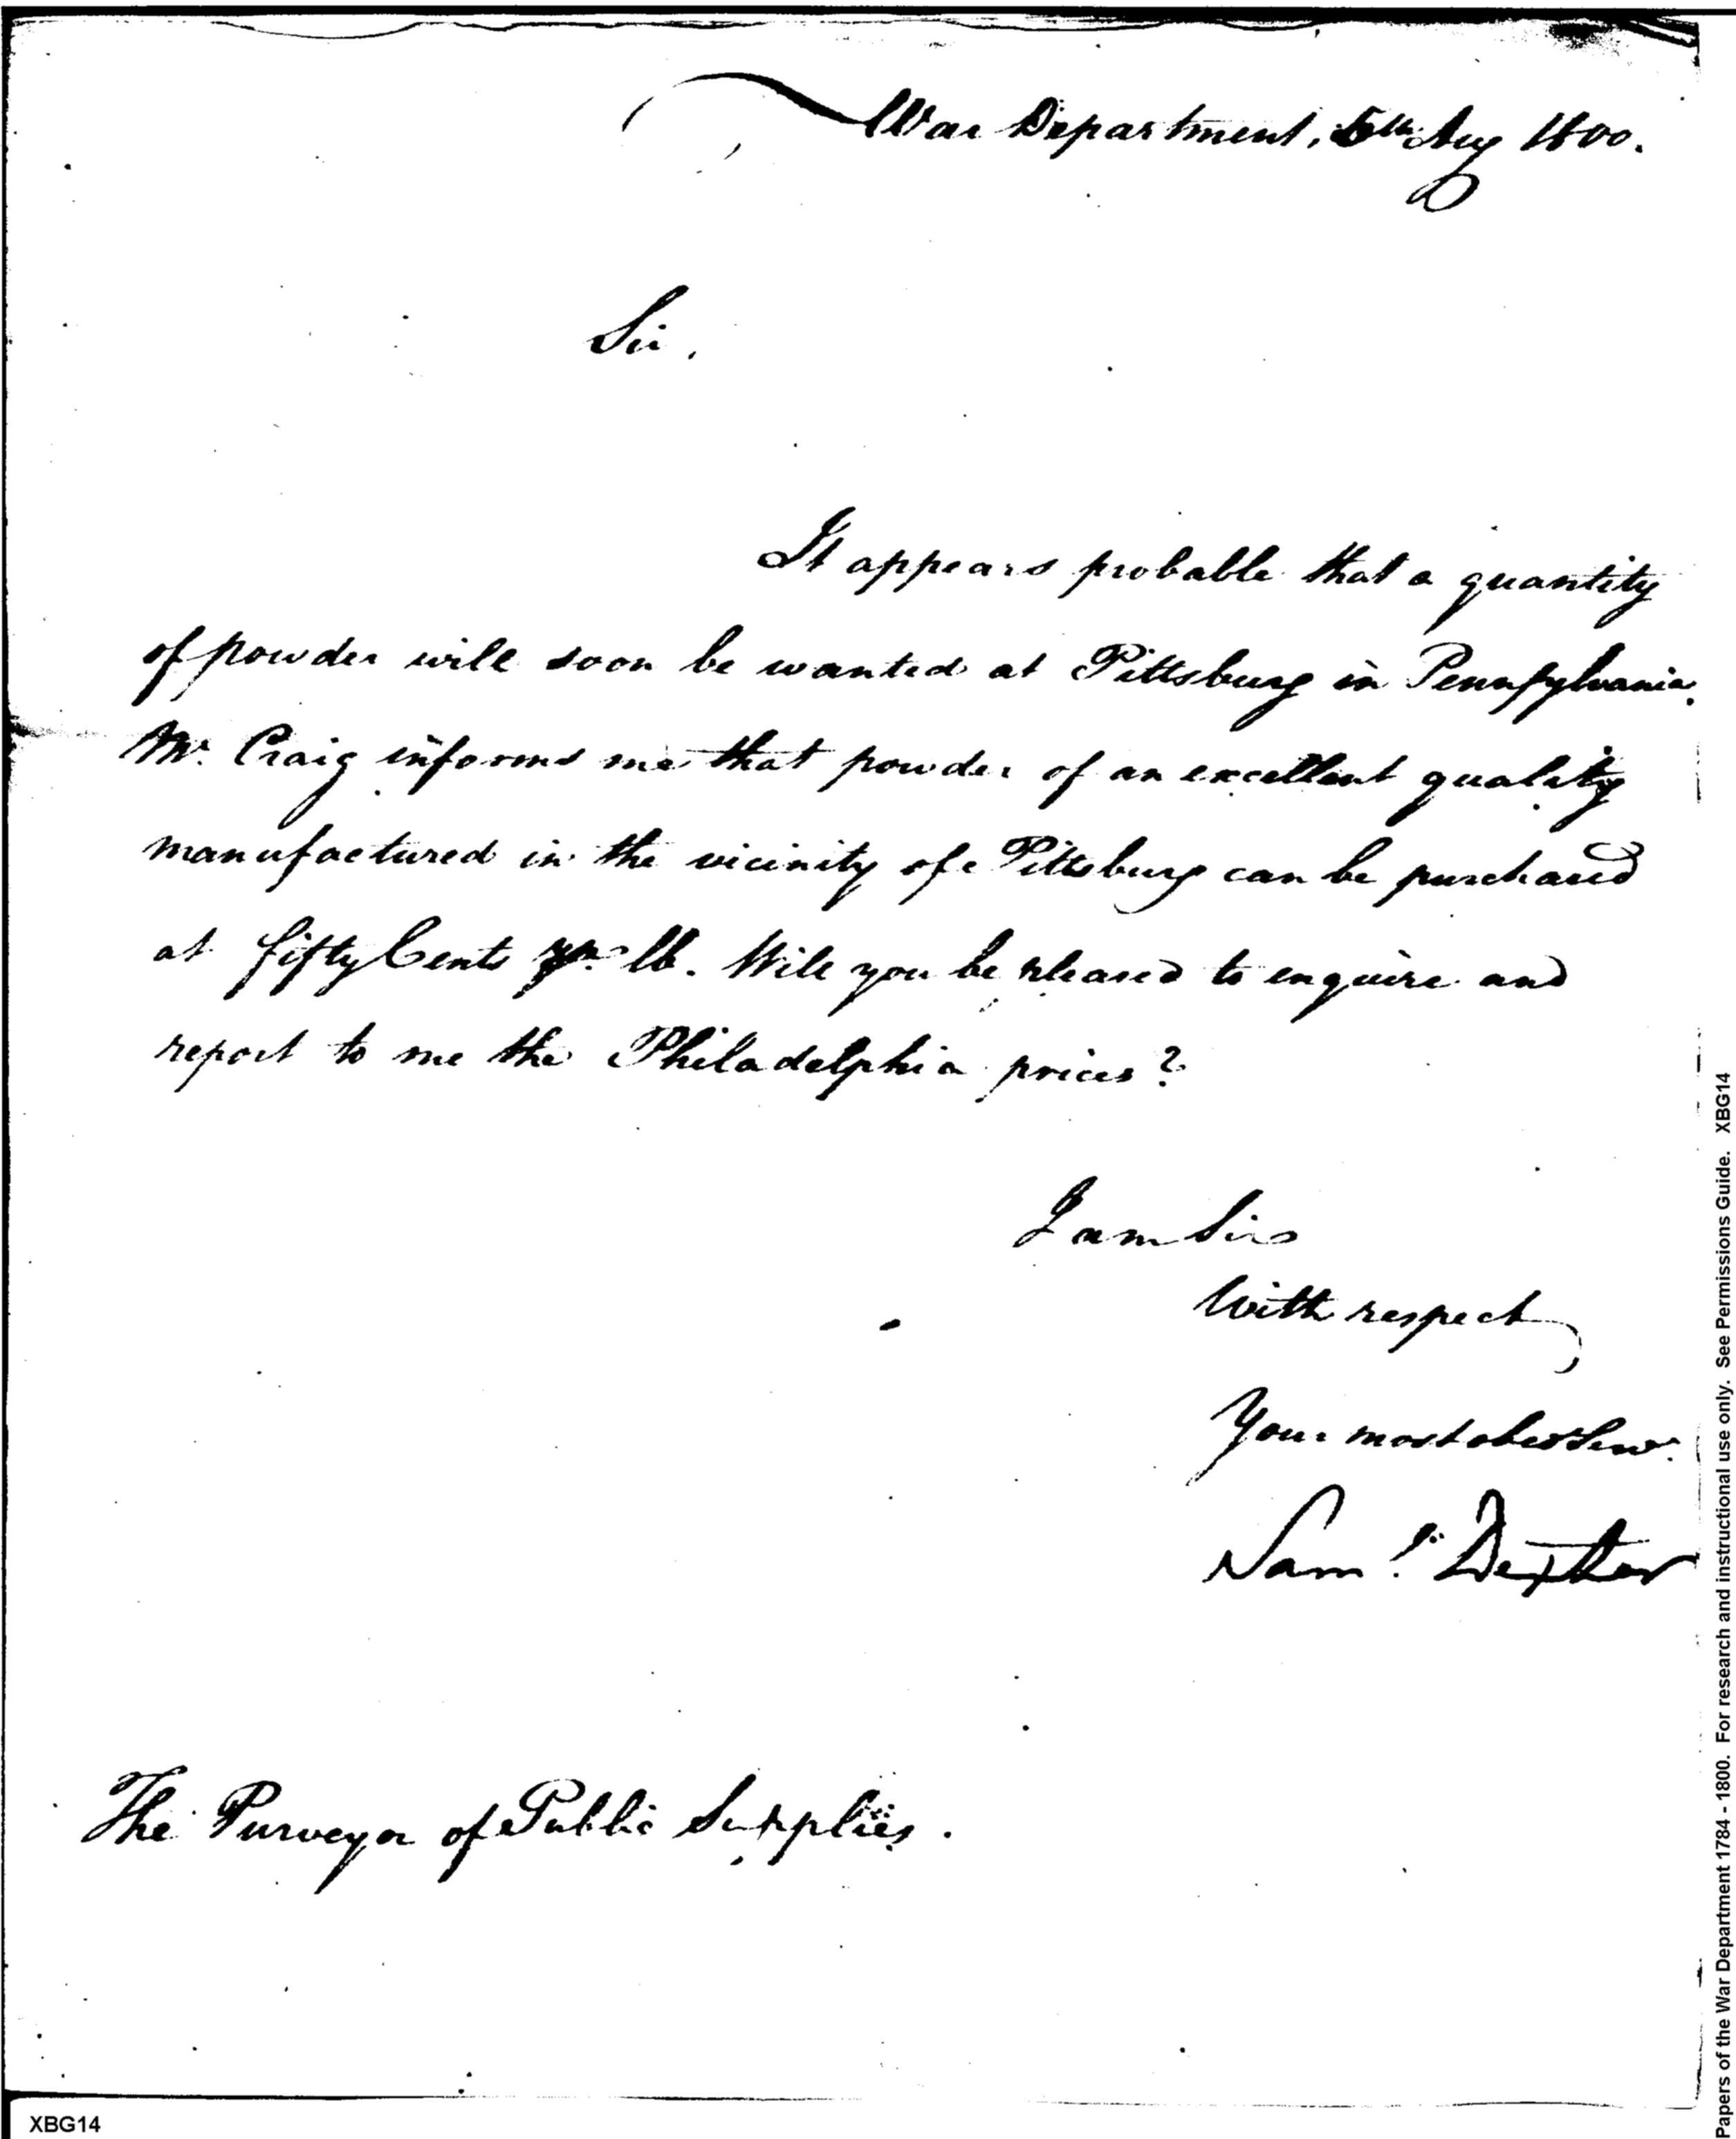 War Department, 5th Aug 1800.
Sir,
It appears probable that a quantity
of powder will soon be wanted at Pittsburg in Pennsylvania.
Mr. Craig informs me that powder of an excellent quality
manufactured in the vicinity of Pittsburg can be purchased
at fifty Cents pr. lb. Will you be pleased to enquire and
report to me the Philadelphia prices?
I am Sir
With respect
Your most obed Serv.
Saml. Dexter
The Purveyor of Public Supplies.
XBG14
Papers of the War Department 1784 - 1800. For research and instructional use only. See Permissions Guide. XBG14